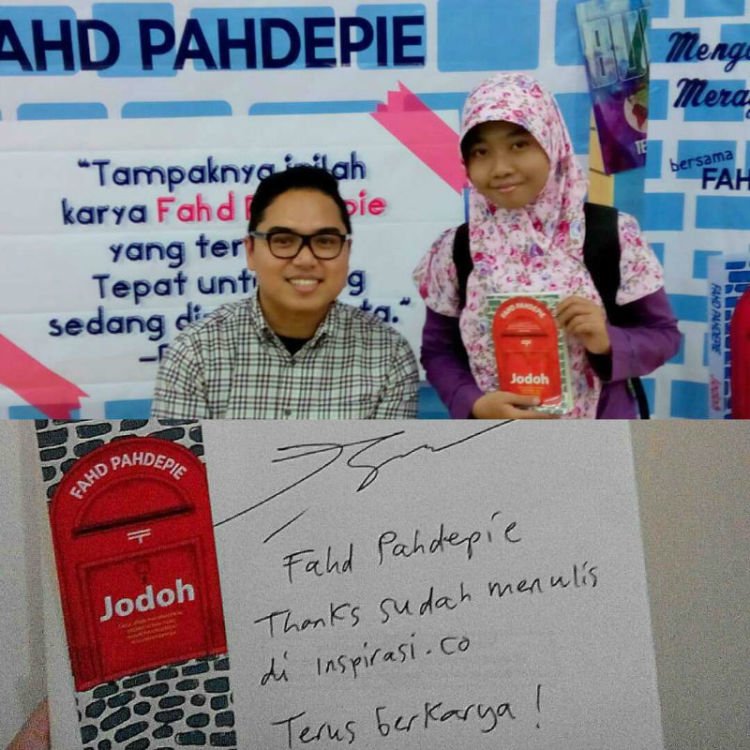 AHD PAHDEPIE
"Tampaknya inilah
karya Fahd
yang
Tepat
sedang
Meng
Mera
bersama
FAH
FAHD PAHDEPIE
Jodoh
FAHD PAHDEPIE
Jodoh
Fahd Pahdepie
Thanks sudah menulis
di inspirasi.co
Terus berkarya!